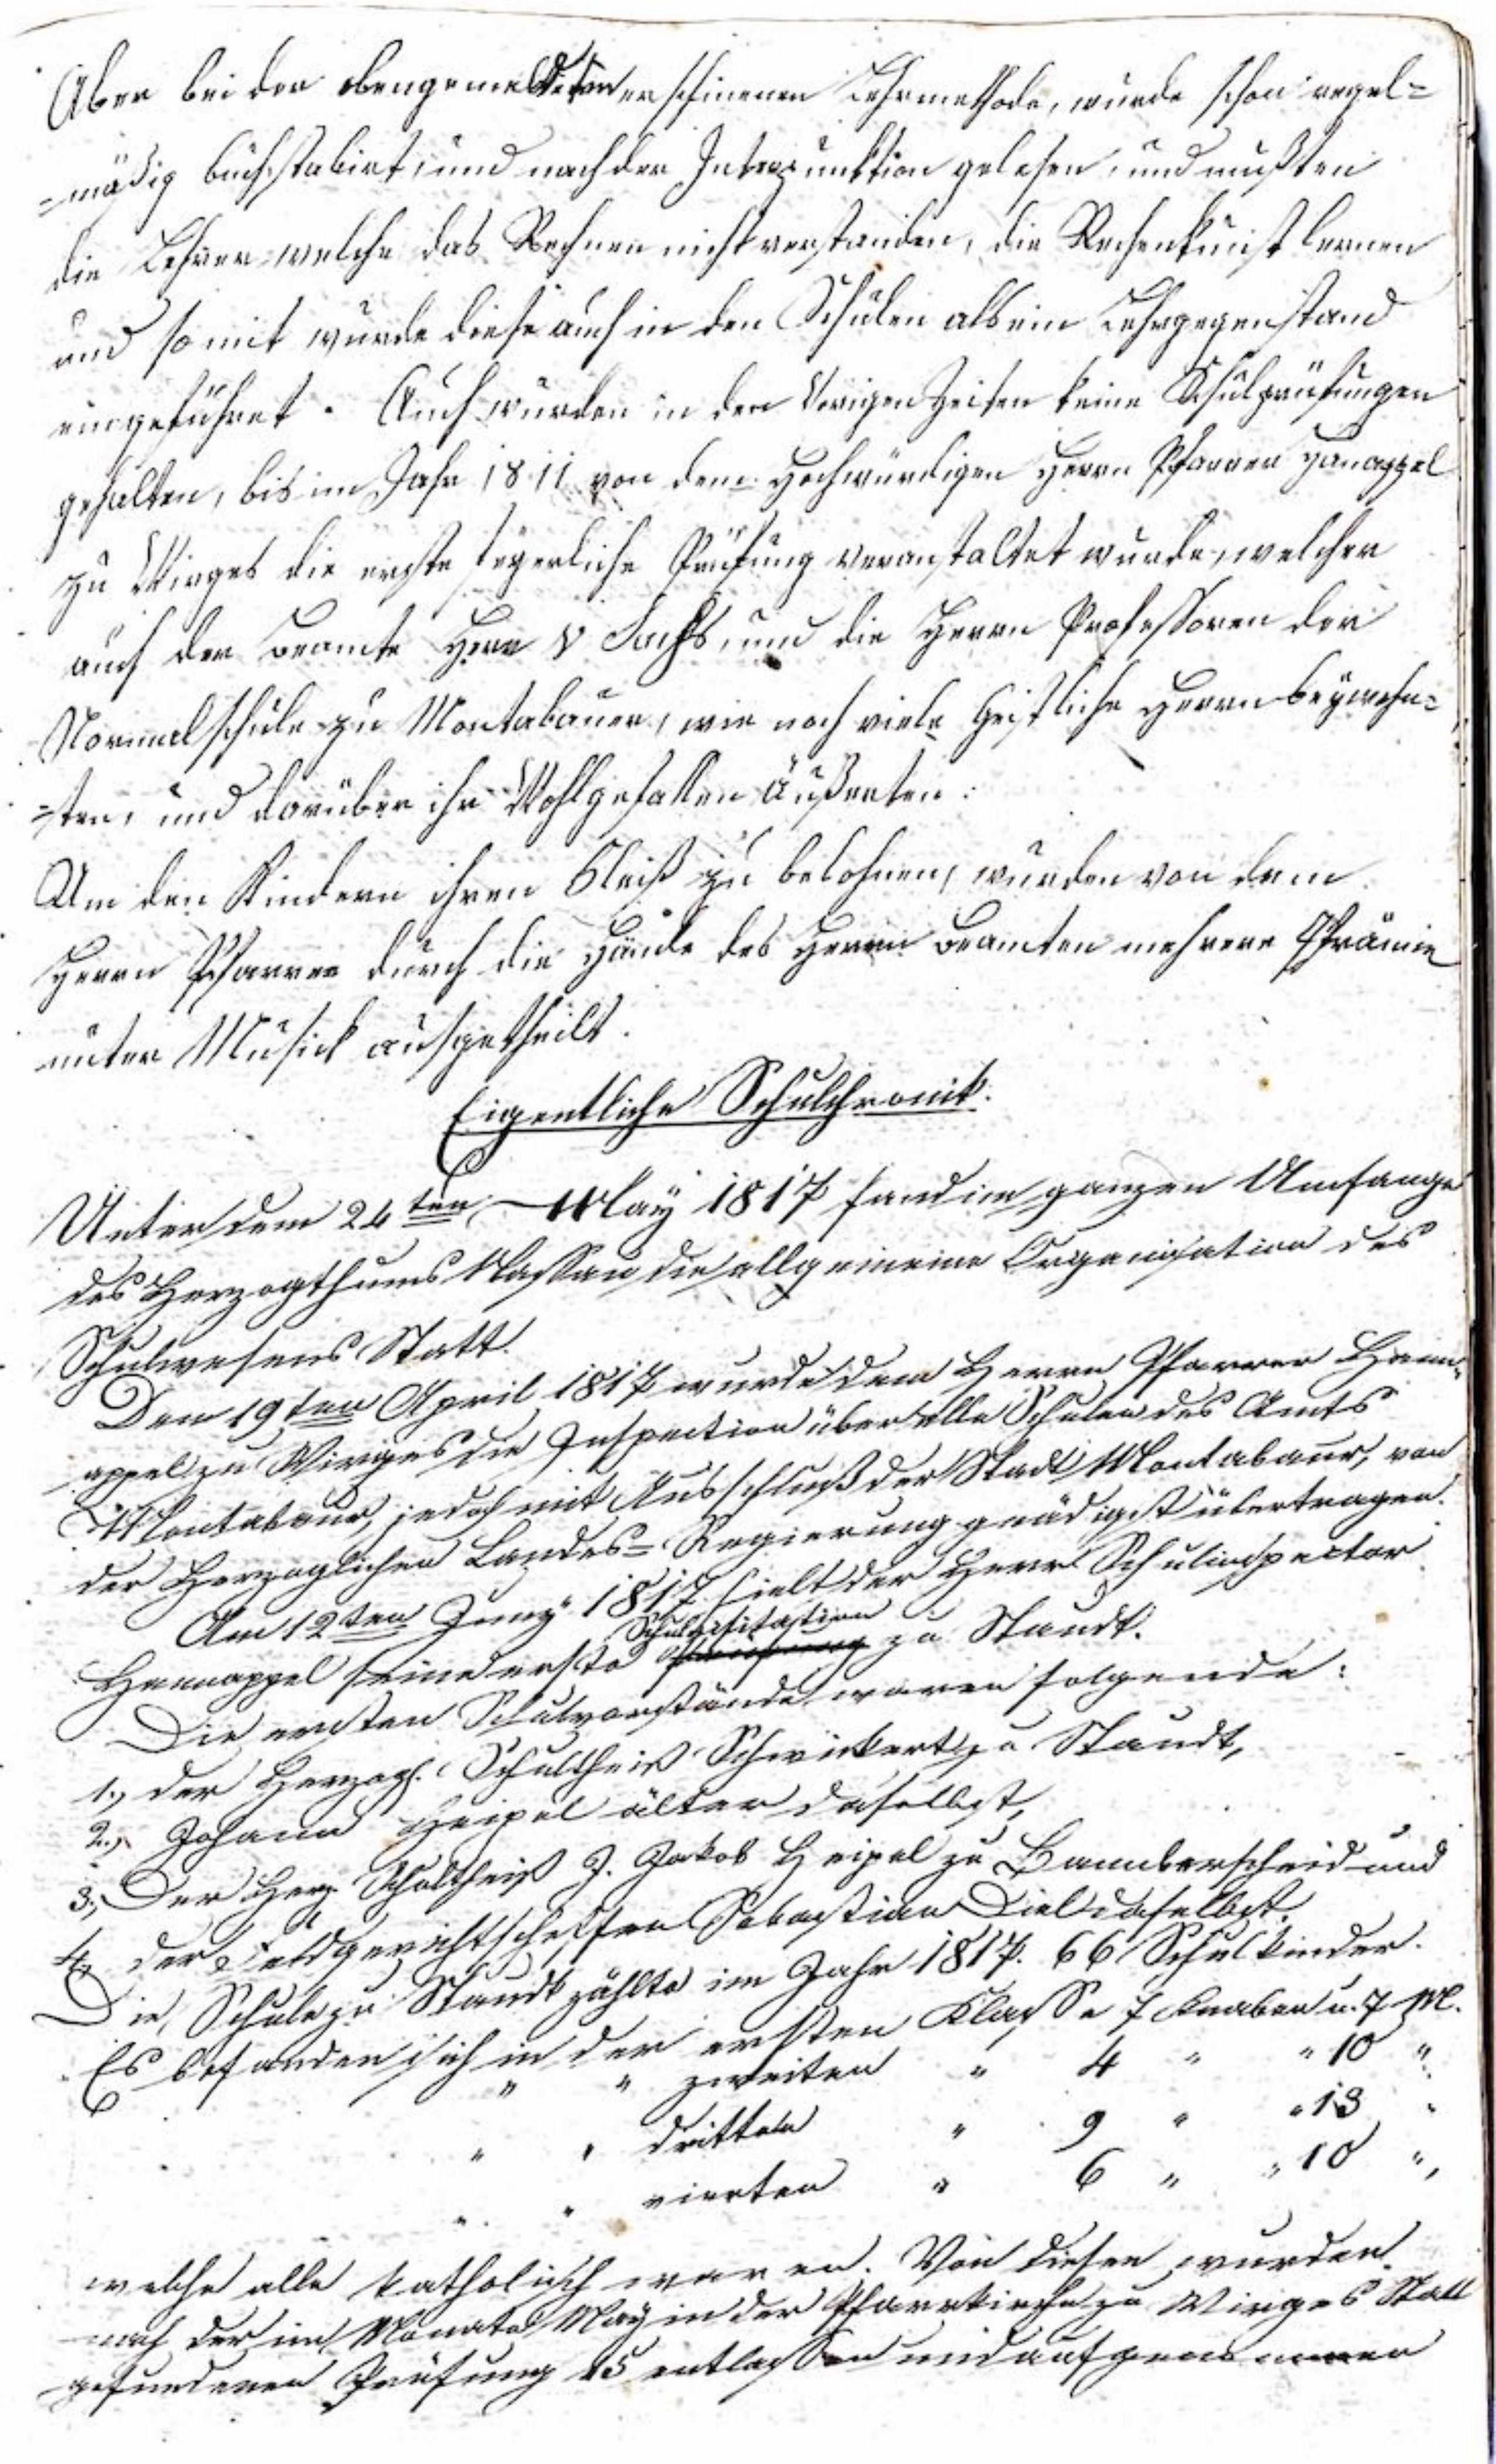 Aber bei der obengemeldeten erschinenen Lehrmethode, wurde schon regel=
=mäßig buchstabirt, und nach der Interpunktion gelesen, und mußten
die Lehrer welche das Rechnen nicht verstanden, die Rechenkunst lernen
und somit wurde diese auch in den Schulen als ein Lehrgegenstand
eingeführet. Auch wurden in den vorigen Zeiten keine Schulprüfungen
gehalten, bis im Jahr 1811 von dem Hochwürdigen Herrn Pfarrer Hanappel
zu Wirges die erste feyerliche Prüfung veranstaltet wurde, welcher
auch der Beamte Herr v Sachs, und die Herrn Professoren der
Normalschule zu Montabauer, wie noch viele Geistliche Herrn beywohn=
=ten, und darüber ihr Wohlgefallen äußerten.
Um den Kindern ihren Fleiß zu belohnen, wurden von dem
Herrn Pfarrer durch die Hände des Herrn Beamten mehrere Prämie
unter Musick ausgetheilt.
Eigentliche Schulchronik.
Unter dem 24ten May 1817 fand im ganzen Umfange
des Herzogthums Nassau die allgemeine Organisation des
Schulwesens Statt.
Den 19ten April 1817 wurde dem Herrn Pfarrer Hann=
appel zu Wirges die Inspection über alle Schulen des Amts
Montabaur, jedoch mit Ausschluß der Stadt Montabaur, von
der Herzoglichen Landes=Regierung gnädigst übertragen.
Am 12ten Juny 1817 hielt der Herr Schulinspector
Schulvisitation
Hannappel seine erste Prüfung zu Staudt.
Die ersten Schulvorstände waren folgende:
1., der Herzogl. Schultheiß Schwickert zu Staudt,
2., Johann Heipel älter daselbst,
3., Der Herz. Schultheiß J. Jakob Heipel zu Bannberscheid und
4., der Feldgerichtschöffen Sebastian Diel daselbst.
Die Schule zu Staudt zählte im Jahr 1817. 66 Schulkinder.
Es befanden sich in der ersten Klasse 7 Knaben u. 7 M.
" " zweiten " 4 " " 10 "
" " dritten " 9 " " 13 "
" " vierten " 6 " " 10 ",
welche alle katholisch waren. Von diesen wurden
nach der im Monate May in der Pfarrkirche zu Wirges Statt
gefundenen Prüfung 15 entlassen und aufgenommen